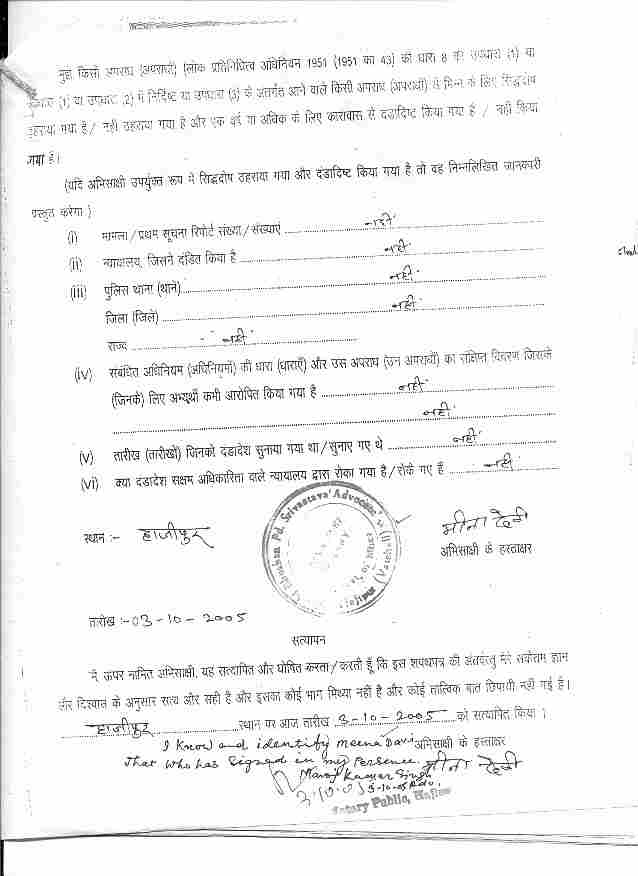 मुझे किसी अपराध (अपराधों) (लोक प्रतिनिधित्व अधिनियम 1951 (1951 का 43) की धारा 8 की उपधारा (1) या
उपधारा (1) या उपधारा (2) में निर्दिष्ट या उपधारा (3) के अंतर्गत आने वाले किसी अपराध (अपराधों) से भिन्न के लिए सिद्धदोष
ठहराया गया है / नहीं ठहराया गया है और एक वर्ष या अधिक के लिए कारावास से दंडादिष्ट किया गया है / नहीं किया
गया है।
(यदि अभिसाक्षी उपर्युक्त रूप में सिद्धदोष ठहराया गया और दंडादिष्ट किया गया है तो वह निम्नलिखित जानकारी
प्रस्तुत करेगा)
(i) मामला/प्रथम सूचना रिपोर्ट संख्या/संख्याएं नहीं
(ii) न्यायालय, जिसने दंडित किया है नहीं
(iii) पुलिस थाना (थाने) नहीं
जिला (जिले) नहीं
राज्य नहीं
(iv) संबंधित अधिनियम (अधिनियमों) की धारा (धाराएँ) और उस अपराध (उन अपराधों) का संक्षिप्त विवरण जिसके
(जिनके) लिए अभ्यर्थी कभी आरोपित किया गया है नहीं
नहीं
(v) तारीख (तारीखों) जिनको दंडादेश सुनाया गया था/सुनाए गए थे नहीं
(vi) क्या दंडादेश सक्षम अधिकारिता वाले न्यायालय द्वारा रोका गया है/रोके गए हैं नहीं
Pd. Srivastava Advocate
स्थान :- हाजीपुर
मीना देवी
अभिसाक्षी के हस्ताक्षर
तारीख :- 03-10-2005
सत्यापन
मैं ऊपर नामित अभिसाक्षी, यह सत्यापित और घोषित करता/करती हूँ कि इस शपथपत्र की अंतर्वस्तु मेरे सर्वोत्तम ज्ञान
और विश्वास के अनुसार सत्य और सही है और इसका कोई भाग मिथ्या नहीं है और कोई तात्विक बात छिपायी नहीं गई है।
हाजीपुर स्थान पर आज तारीख 3-10-2005 को सत्यापित किया।
I know and identify meena Davi अभिसाक्षी के हस्ताक्षर
That who has signed in my Persence. मीना देवी
Manoj Kumar Singh
3-10-05
Notary Public, Hajipur